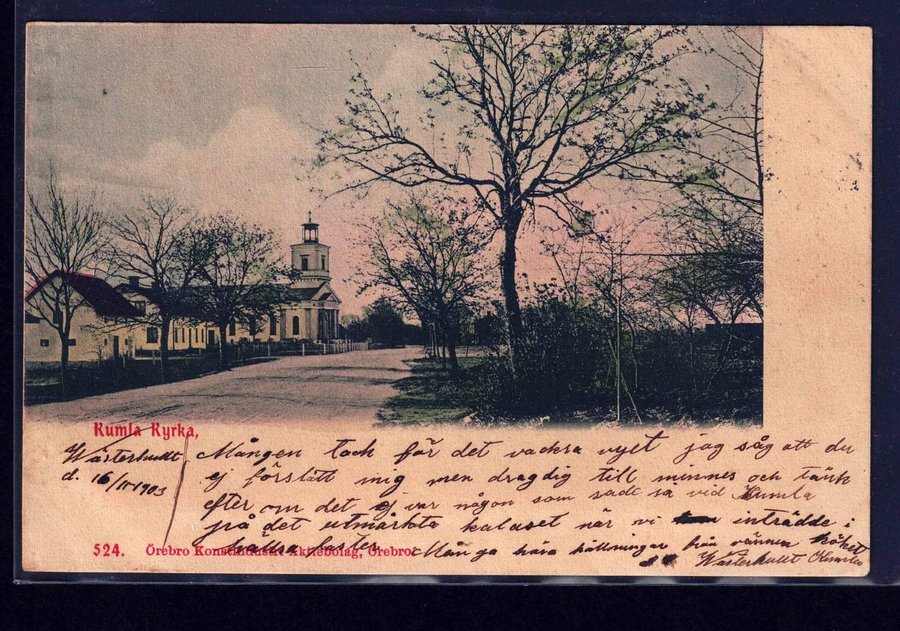 Kumla Kyrka,
Wästerhullt
d. 16/11 1903
Mången tack för det vackra vyet jag såg att du
ej förstått mig men dragdig till minnes och tänk
efter om det ej var någon som sade så vid Kumla
på det utmärkta kalaset när vi inträdde i
köket
Många kära hällningar från vännen
Wästerhullt Kumla
524. Örebro Konstindustri Aktiebolag, Örebro.